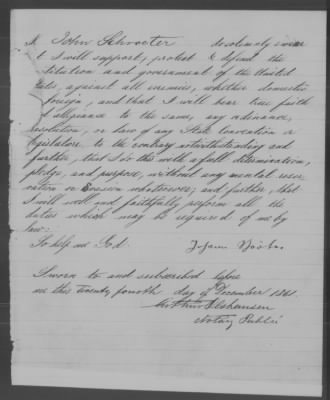 I John Schroeter do solemnly swear
I will support, protect & defend the
stitution and government of the United
ates, against all enemies, whether domestic
foreign, and that I will bear true faith
d allegiance to the same, any ordinance,
resolution, or law of any State Convention or
legislature, to the contrary notwithstanding and
further, that I do this with a full determination,
pledge, and purpose, without any mental reser
vation or Evasion whatsoever; and further, that
I will well and faithfully perform all the
duties which may be required of me by
law:
So help me God.
Sworn to and subscribed before
me this twenty fourth day of December 1861.
Notary Public